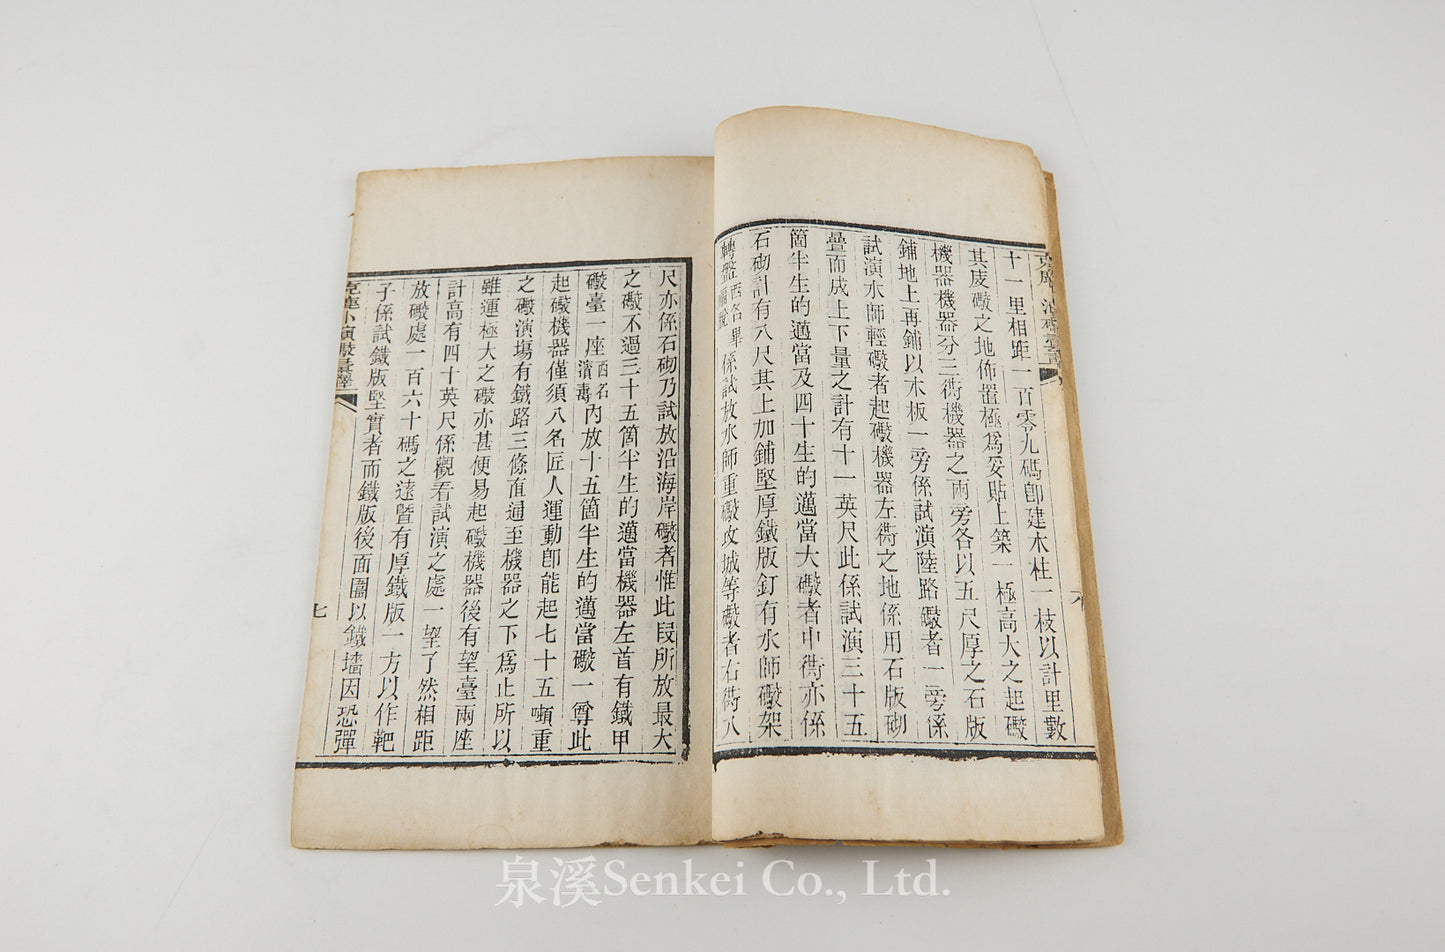 十一里相距一百零九碼卽建木柱一枝以計里數
其庋礮之地佈置極爲妥貼上築一極高大之起礮
機器機器分三衖機器之兩旁各以五尺厚之石版
鋪地上再鋪以木板一旁係試演陸路礮者一旁係
試演水師輕礮者起礮機器左衖之地係用石版砌
疊而成上下量之計有十一英尺此係試演三十五
箇半生的邁當及四十生的邁當大礮者中衖亦係
石砌計有八尺其上加鋪堅厚鐵版釘有水師礮架
轉盤西名畢係試放水師重礮攻城等礮者右衖八
尺亦係石砌乃試放沿海岸礮者惟此段所放最大
之礮不過三十五箇半生的邁當機器左首有鐵甲
礮臺一座西名濱毒內放十五箇半生的邁當礮一尊此
起礮機器僅須八名匠人運動卽能起七十五噸重
之礮演塲有鐵路三條直通至機器之下爲止所以
雖運極大之礮亦甚便易起礮機器後有望臺兩座
計高有四十英尺係觀看試演之處一望了然相距
放礮處一百六十碼之遠曁有厚鐵版一方以作靶
子係試鐵版堅實者而鐵版後面圍以鐵墻因恐彈
七
泉溪Senkei Co., Ltd.